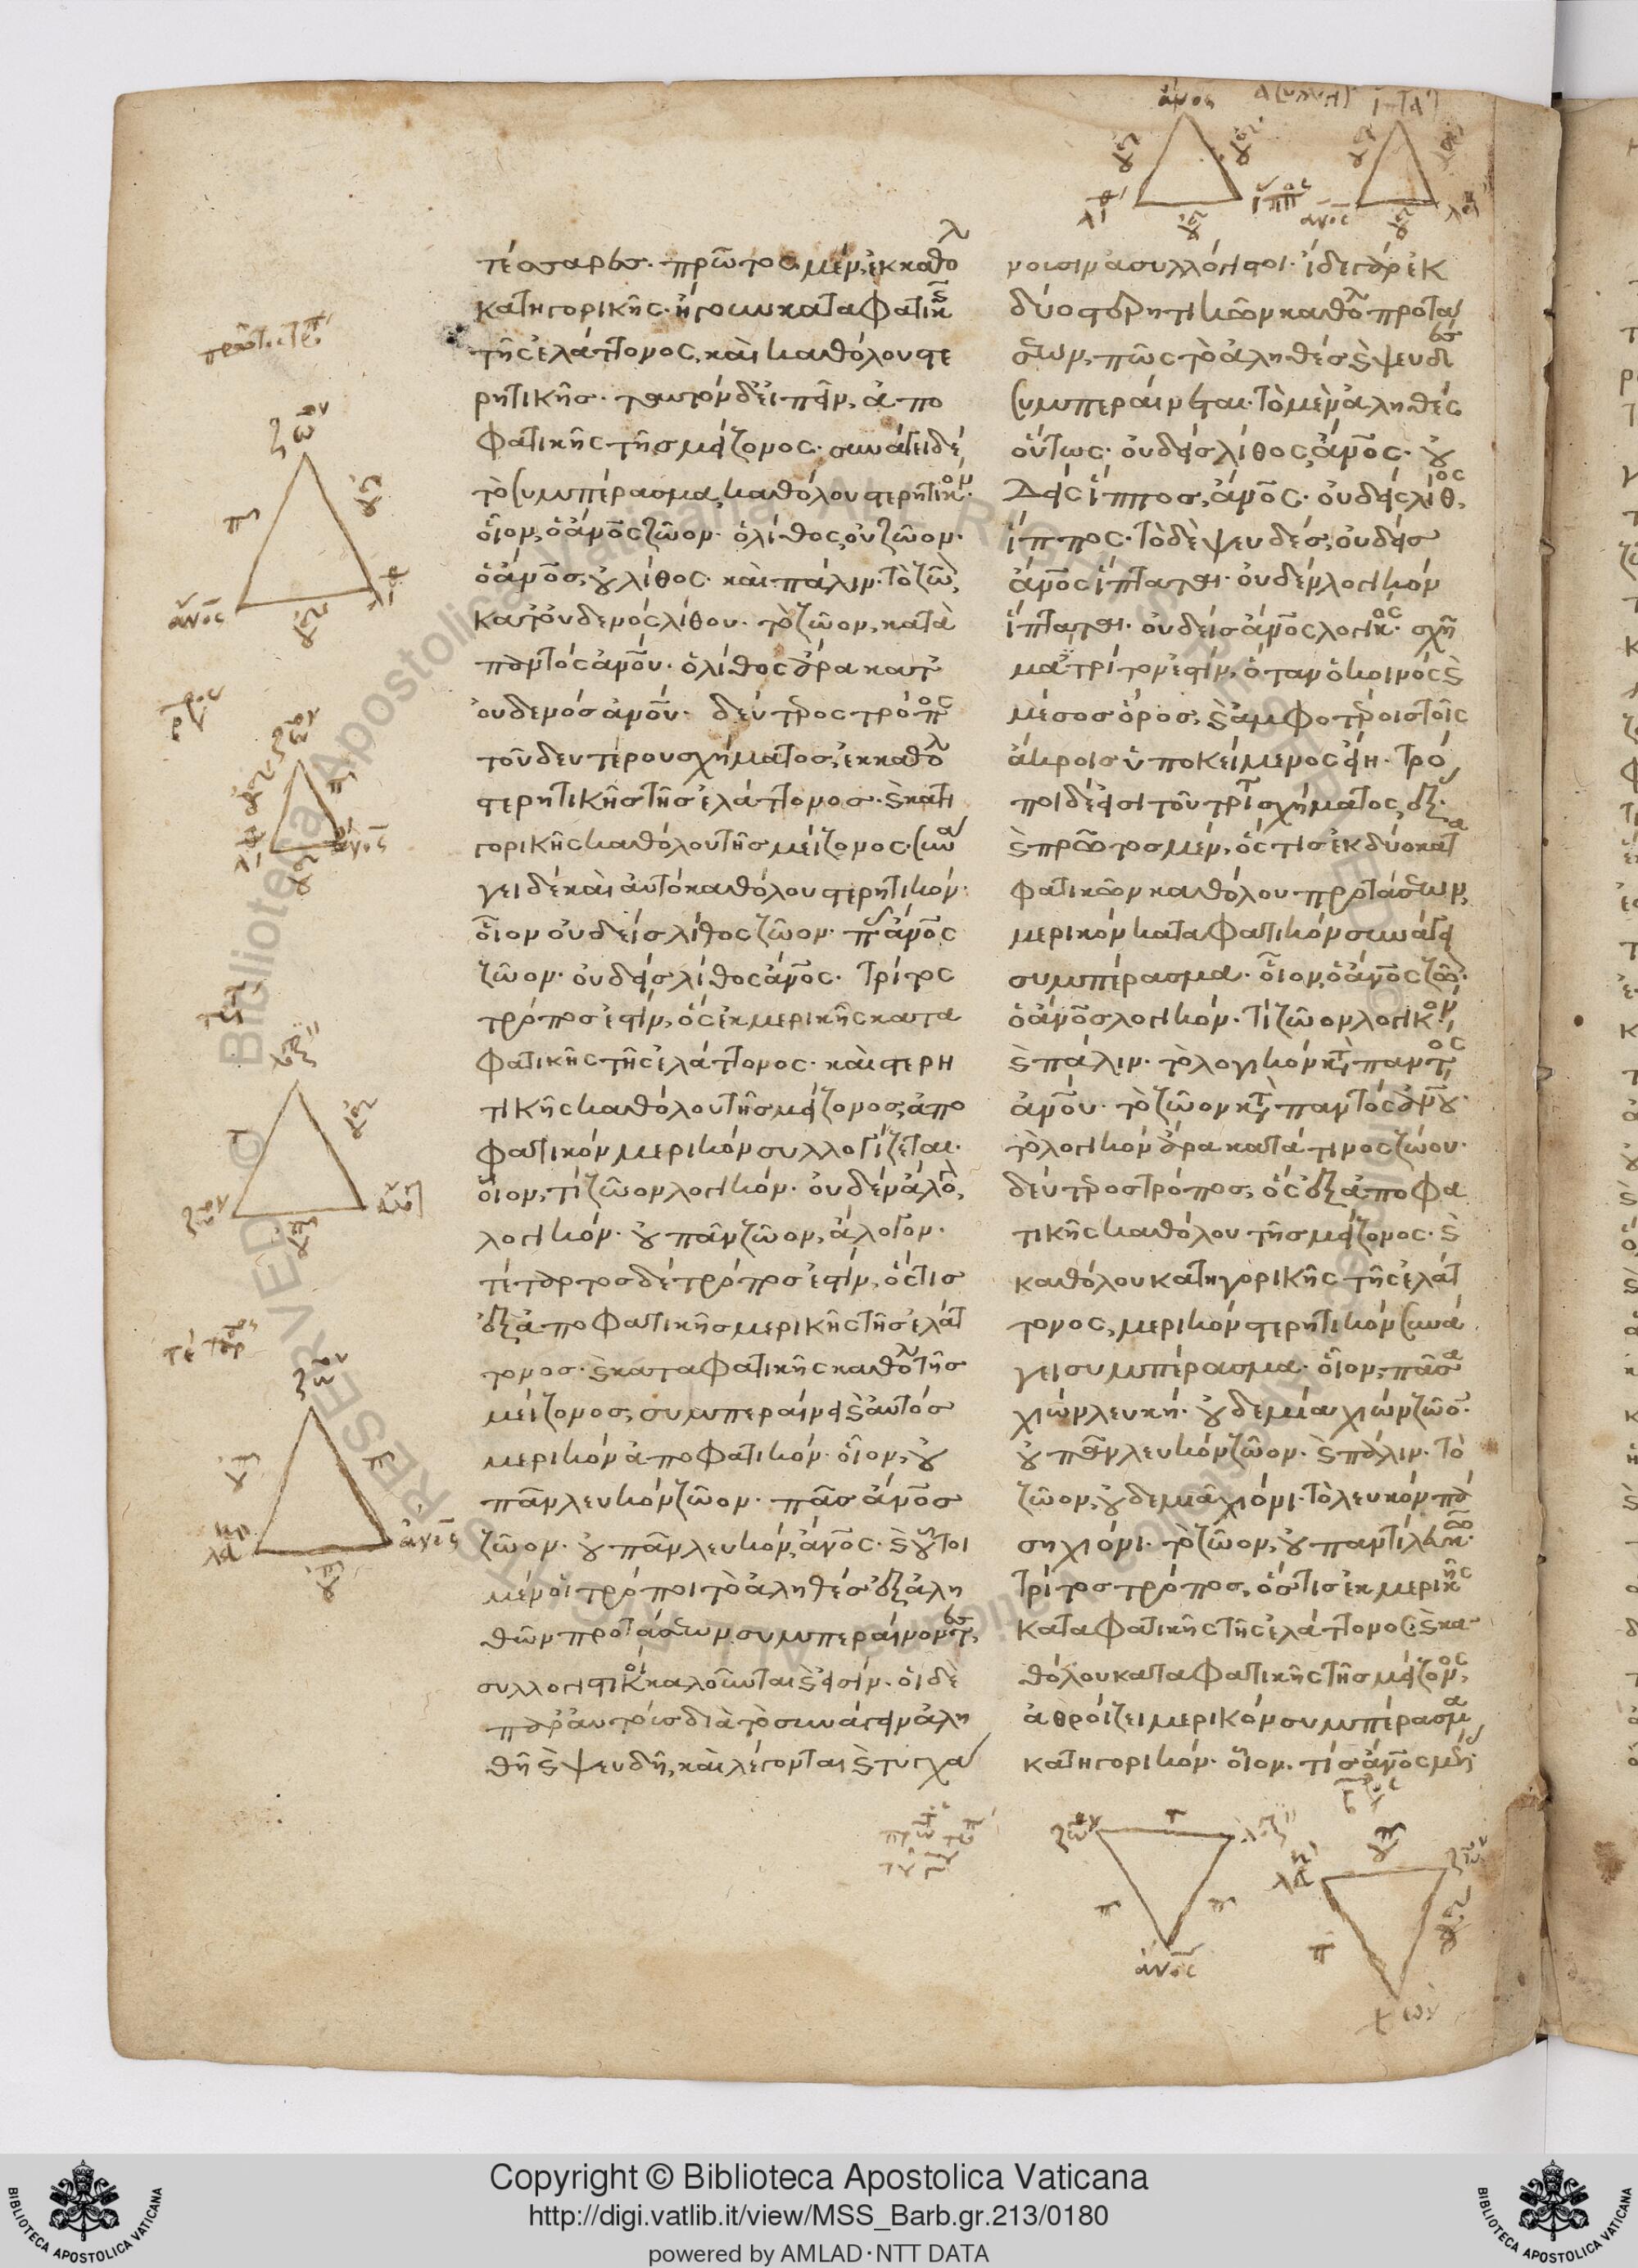 τέσσαρες. πρῶτος μὲν, ἐκ καθόλ
κατηγορικῆς. ἤγουν καταφατικῆς
τῆς ἐλάττονος, καὶ καθόλου στε
ρητικῆς. ταυτὸν δ' εἰπεῖν, ἀπο
φατικῆς τῆς μείζονος. συνάγει δὲ
τὸ συμπέρασμα, καθόλου στερητικόν.
οἷον, ὁ ἄνος ζῶον. ὁ λίθος, οὐ ζῶον.
ὁ ἄνος, οὐ λίθος. καὶ πάλιν. τὸ ζῶ,
κατ' οὐδενὸς λίθου. τὸ ζῶον, κατὰ
παντὸς ἀνου. ὁ λίθος ἄρα κατ'
οὐδενὸς ἀνου. δεύτερος τρόπος
τοῦ δευτέρου σχήματος, ἐκ καθόλ
στερητικῆς τῆς ἐλάττονος. καὶ κατη
γορικῆς καθόλου τῆς μείζονος. συνά
γει δὲ καὶ αὐτὸ καθόλου στερητικόν.
οἷον οὐδεὶς λίθος ζῶον. πᾶς ἄνος
ζῶον. οὐδεὶς λίθος ἄνος. τρίτος
τρόπος ἐστὶν, ὃς ἐκ μερικῆς κατα
φατικῆς τῆς ἐλάττονος. καὶ στερη
τικῆς καθόλου τῆς μείζονος, ἀπο
φατικὸν μερικὸν συλλογίζεται.
οἷον, τὶ ζῶον λογικόν. οὐδὲν ἄλογ,
λογικόν. οὐ πᾶν ζῶον, ἄλογον.
τέταρτος δὲ τρόπος ἐστὶν, ὅστις
ἐξ ἀποφατικῆς μερικῆς τῆς ἐλάτ
τονος. καὶ καταφατικῆς καθόλ τῆς
μείζονος, συμπεραίνει καὶ αὐτὸς
μερικὸν ἀποφατικόν. οἷον, οὐ
πᾶν λευκὸν ζῶον. πᾶς ἄνος
ζῶον. οὐ πᾶν λευκὸν, ἄνος. καὶ οὗτοι
μὲν οἱ τρόποι τὸ ἀληθὲς ἐξ ἀλη
θῶν προτάσεων συμπεραίνοντες,
συλλογιστικοὶ καλοῦνται καὶ εἰσίν. οἱ δὲ
παρ' αὐτοῖς διὰ τὸ συνάγειν ἀλη
θῆ καὶ ψευδῆ, καὶ λέγονται καὶ τυγχά
νουσιν ἀσυλλόγιστοι. ἰδὲ γὰρ ἐκ
δύο στερητικῶν καθόλ προτά
σεων, πῶς τὸ ἀληθὲς καὶ ψευδὲς
συμπεραίνεται. τὸ μὲν ἀληθὲς
οὕτως. οὐδεὶς λίθος, ἄνος. οὐ
δεὶς ἵππος, ἄνος. οὐδεὶς λίθος,
ἵππος. τὸ δὲ ψευδὲς, οὐδεὶς
ἄνος ἵπταται. οὐδὲν λογικὸν
ἵπταται. οὐδεὶς ἄνος λογικός. σχῆ
μα τρίτον ἐστὶν, ὅταν ὁ κοινὸς καὶ
μέσος ὅρος, καὶ ἀμφοτέροις τοῖς
ἄκροις ὑποκείμενος εἴη. τρό
ποι δέ εἰσι τοῦ τρίτ σχήματος, ἕξ.
καὶ πρῶτος μὲν, ὅστις ἐκ δύο κατα
φατικῶν καθόλου προτάσεων,
μερικὸν καταφατικὸν συνάγει
συμπέρασμα. οἷον, ὁ ἄνος ζῶον.
ὁ ἄνος λογικόν. τὶ ζῶον λογικόν.
καὶ πάλιν. τὸ λογικὸν κατὰ παντὸς
ἀνου. τὸ ζῶον κατὰ παντὸς ἀνου.
τὸ λογικὸν ἄρα κατά τινος ζώου.
δεύτερος τρόπος, ὃς ἐξ ἀποφα
τικῆς καθόλου τῆς μείζονος. καὶ
καθόλου κατηγορικῆς τῆς ἐλάτ
τονος, μερικὸν στερητικὸν συνά
γει συμπέρασμα. οἷον, πᾶσα
χιὼν λευκή. οὐδεμία χιὼν ζῶον.
οὐ πᾶν λευκὸν ζῶον. καὶ πάλιν. τὸ
ζῶον, οὐδεμιᾷ χιόνι. τὸ λευκὸν πά
σῃ χιόνι. τὸ ζῶον, οὐ παντὶ λευκῷ.
τρίτος τρόπος, ὅστις ἐκ μερικῆς
καταφατικῆς τῆς ἐλάττονος. καὶ κα
θόλου καταφατικῆς τῆς μείζονος,
ἀθροίζει μερικὸν συμπέρασμα
κατηγορικόν. οἷον, τὶς ἄνος
ζῶον
ἄνος
λίθ
ζῶον
λίθ
ἄνος
τέταρ
ζῶον
ἄνος
ζῶον
ἄνος
ζῶον
χιών
Copyright © Biblioteca Apostolica Vaticana
http://digi.vatlib.it/view/MSS_Barb.gr.213/0180
powered by AMLAD · NTT DATA
BIBLIOTECA APOSTOLICA VATICANA
BIBLIOTECA APOSTOLICA VATICANA